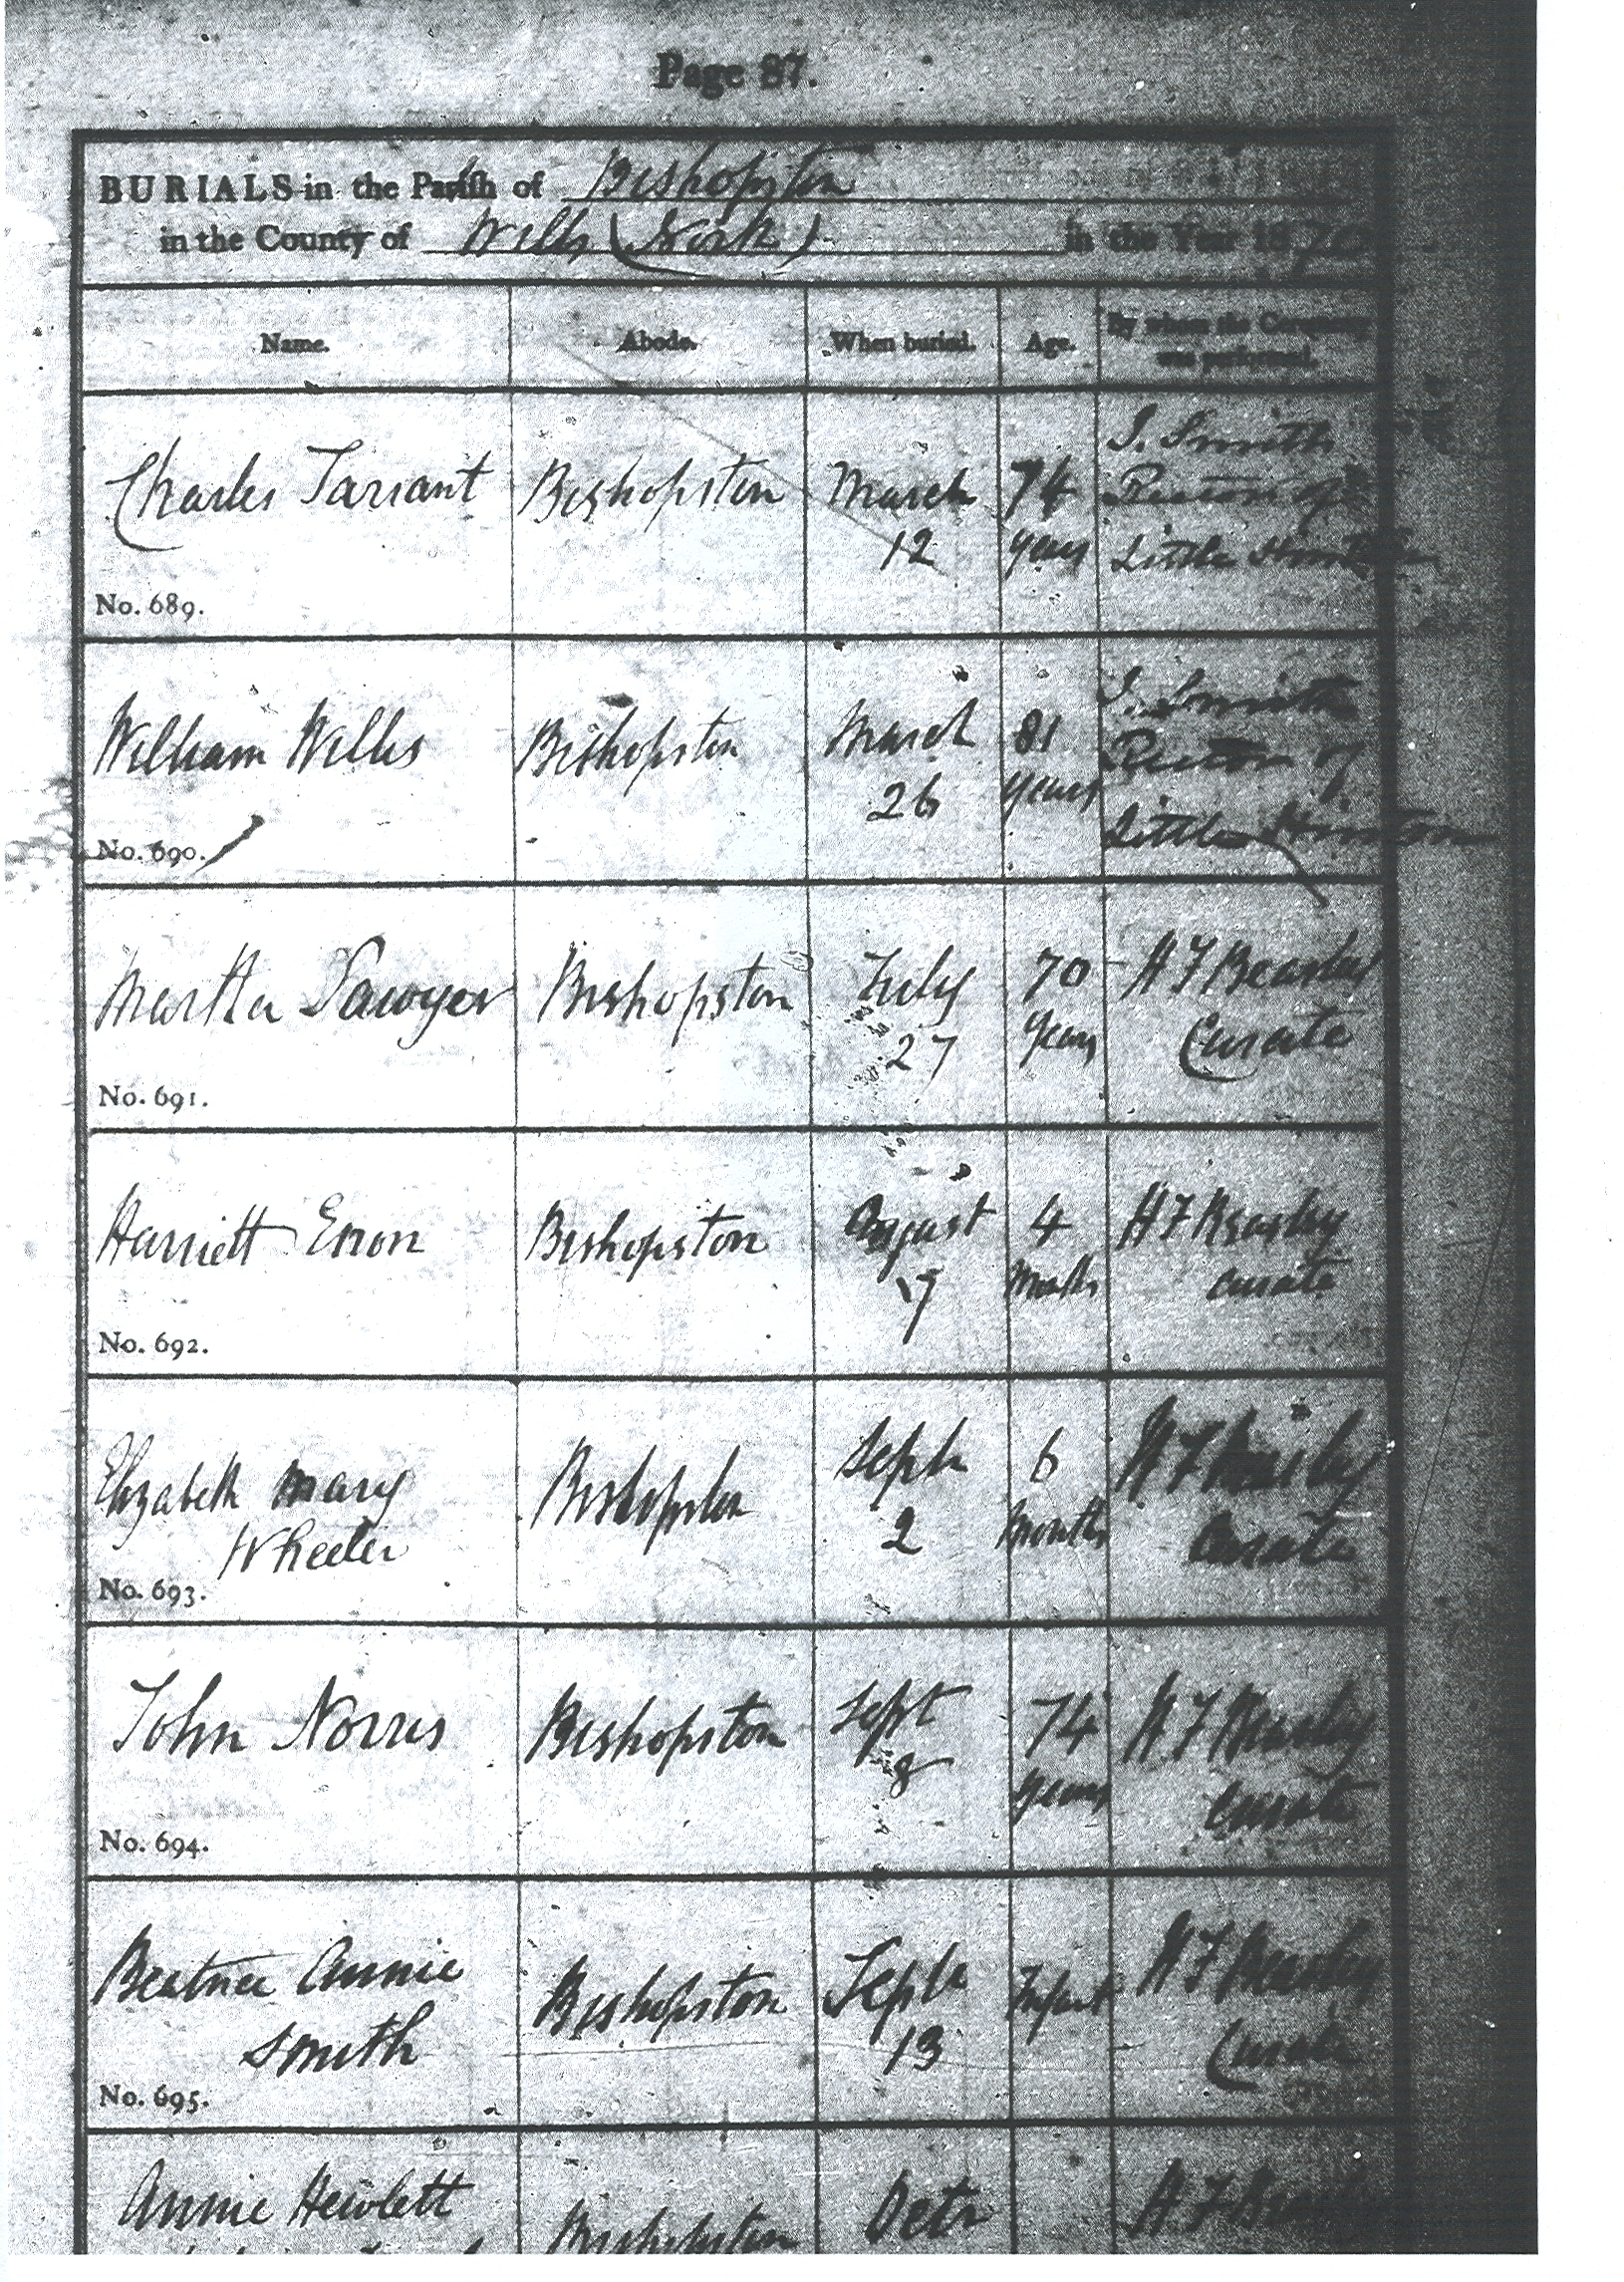 Page 87.
BURIALS in the Parish of Bishopston
in the County of Wilts (North) in the Year 1870
Name. Abode. When buried. Age. By whom the Ceremony was performed.
Charles Tarrant Bishopston March 12 74 years J. Smith Rector of Little Hinton
No. 689.
William Willis Bishopston March 26 81 years J. Smith Rector of Little Hinton
No. 690.
Martha Sawyer Bishopston July 27 70 years H F Beasley Curate
No. 691.
Harriett Bishopston August 17 4 H F Beasley curate
No. 692.
Elizabeth Mary Wheeler Bishopston Septr 2 6 months H F Beasley Curate
No. 693.
John Norris Bishopston Sept 8 74 years H F Beasley Curate
No. 694.
Beatrice Annie Smith Bishopston Septr 13 Infant H F Beasley Curate
No. 695.
Annie Hewlett Bishopston Octr H F